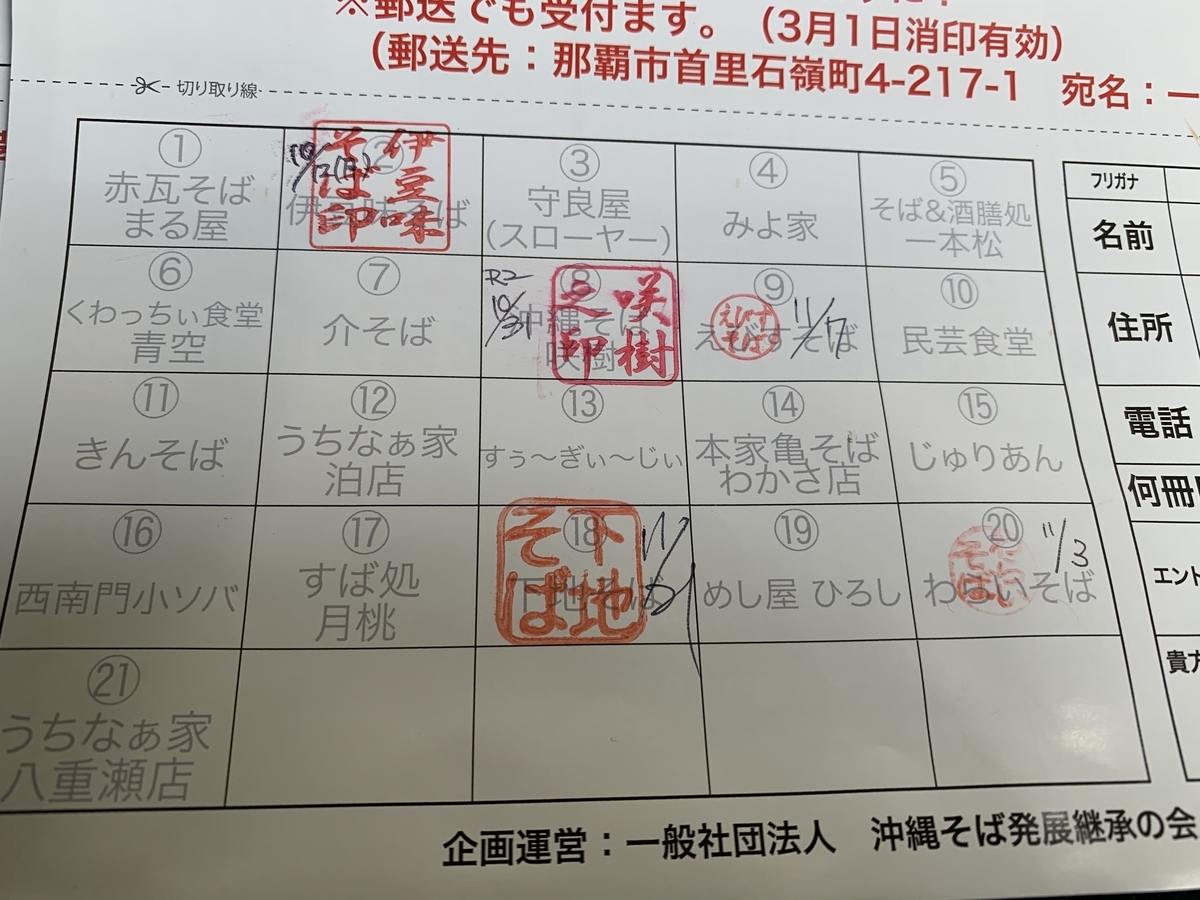 ※郵送でも受付ます。(3月1日消印有効)
(郵送先:那覇市首里石嶺町4-217-1 宛名:一
切り取り線
①
赤瓦そば
まる屋
②
伊豆味そば
伊豆味
そば印
③
守良屋
(スローヤー)
④
みよ家
⑤
そば&酒膳処
一本松
フリガナ
名前
⑥
くわっちぃ食堂
青空
⑦
介そば
R2
10/31
⑧
沖縄そば
咲樹
咲樹
之印
⑨
えびすそば
えびす
そば
11/7
⑩
民芸食堂
住所
⑪
きんそば
⑫
うちなぁ家
泊店
⑬
すぅ〜ぎぃ〜じぃ
⑭
本家亀そば
わかさ店
⑮
じゅりあん
電話
何冊
⑯
西南門小ソバ
⑰
すば処
月桃
⑱
下地そば
下地
そば
11/
⑲
めし屋 ひろし
⑳
そば
11/3
エント
貴方
㉑
うちなぁ家
八重瀬店
企画運営:一般社団法人 沖縄そば発展継承の会